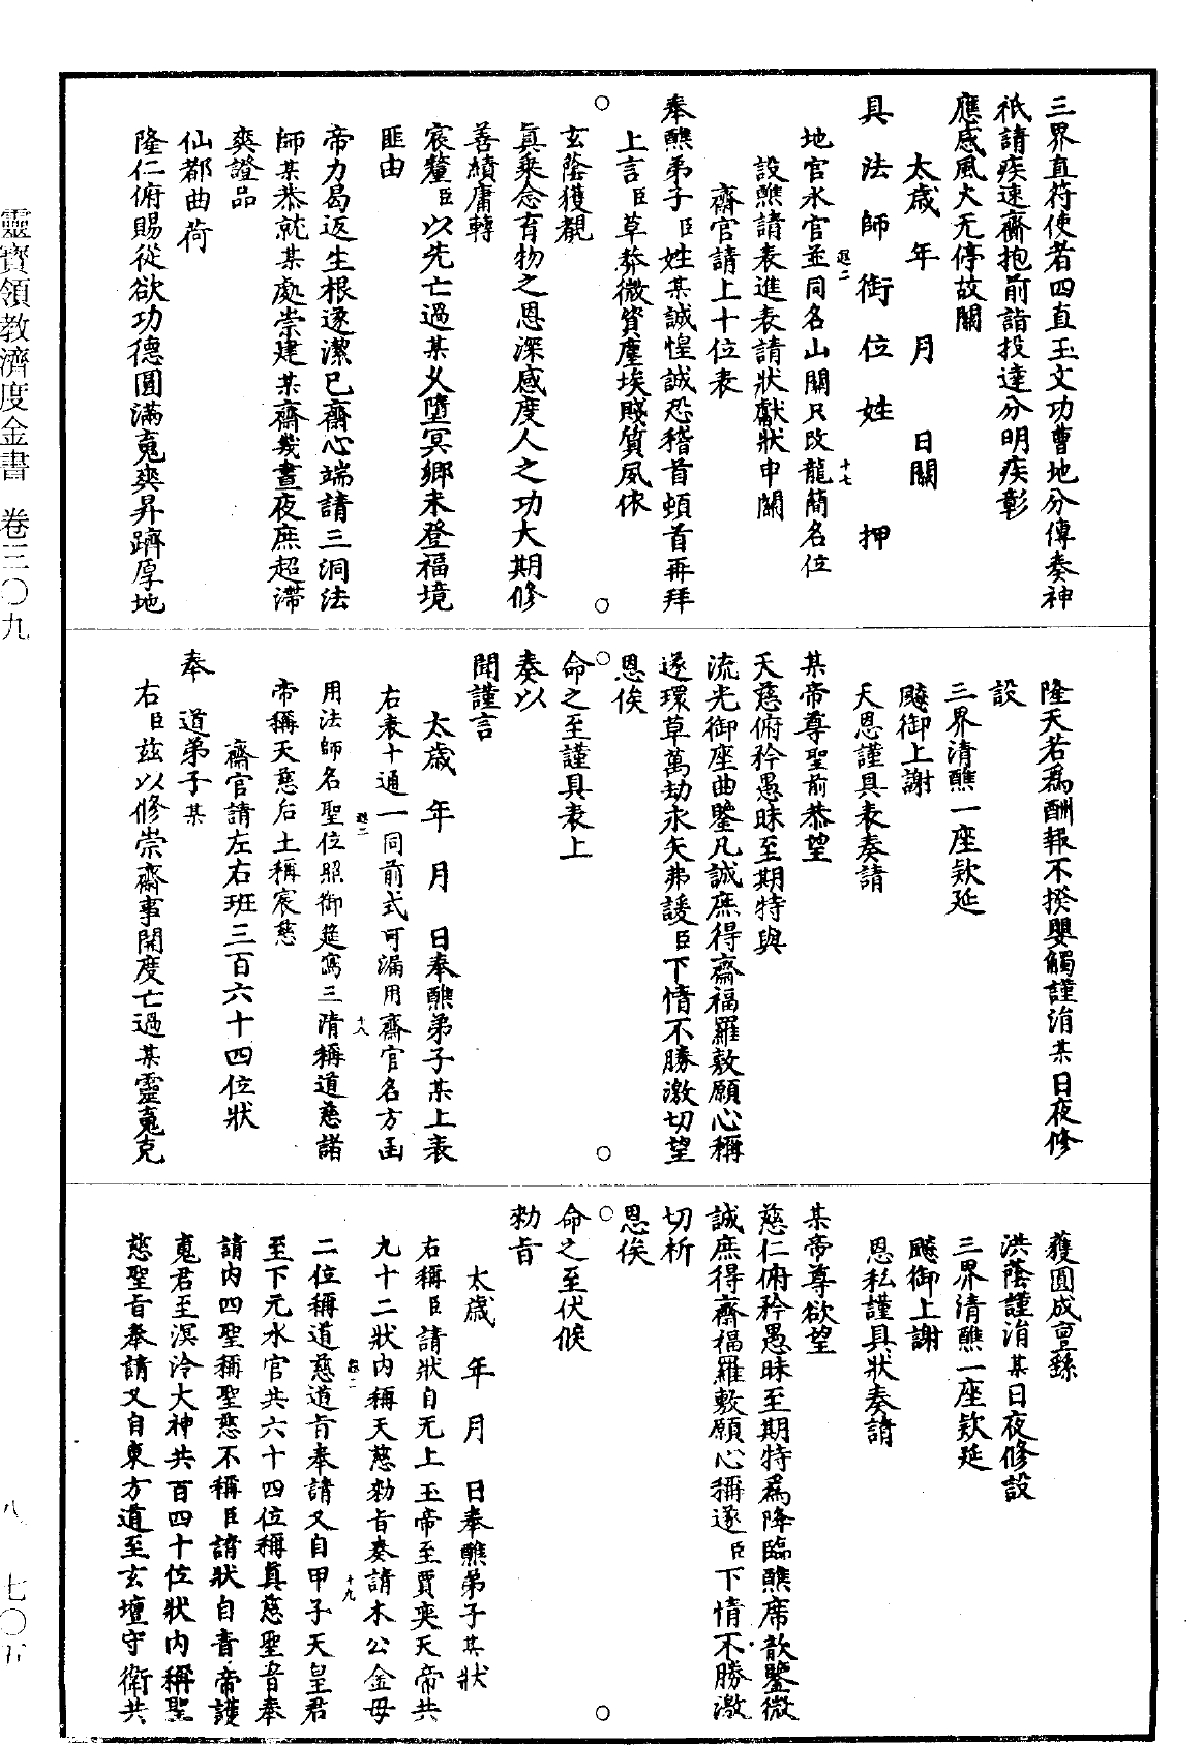 三界直符使者四直玉文功曹地分傳奏神
祇請疾速齎抱前詣投達分明疾彰
應感風火无停故關
太歲 年 月 日關
具 法 師 銜 位 姓 押
地官水官並同名山關只改龍簡名位
設醮請表進表請狀獻狀申關
齋官請上十位表
奉醮弟子臣姓某誠惶誠恐稽首頓首再拜
上言臣草莽微質塵埃賤質夙依
玄蔭獲覩
眞乘念育物之恩深感度人之功大期修
善績庸轉
宸釐臣以先亡過某久墮冥鄉未登福境
匪由
帝力曷返生根遂潔已齋心端請三洞法
師某恭就某處崇建某齋幾晝夜庶超滯
爽證品
仙都曲荷
隆仁俯賜從欲功德圓滿䰟爽昇躋厚地
隆天若爲酬報不揆嬰觸謹涓某日夜修
設
三界清醮一座欵延
飈御上謝
天恩謹具表奏請
某帝尊聖前恭望
天慈俯矜愚昧至期特與
流光御座曲鑒凡誠庶得齋福羅敷願心稱
遂環草萬劫永矢弗諼臣下情不勝激切望
恩俟
命之至謹具表上
奏以
聞謹言
太歲 年 月 日奉醮弟子某上表
右表十通一同前式可漏用齋官名方函
用法師名聖位照御筵寫三清稱道慈諸
帝稱天慈后土稱宸慈
齋官請左右班三百六十四位狀
奉 道弟子某
右臣茲以修崇齋事開度亡過某靈䰟克
獲圓成亶繇
洪蔭謹涓某日夜修設
三界清醮一座欵延
飈御上謝
恩私謹具狀奏請
某帝尊欲望
慈仁俯矜愚昧至期特爲降臨醮席歆鑒微
誠庶得齋福羅敷願心稱遂臣下情不勝激
切祈
恩俟
命之至伏候
勑旨
太歲 年 月 日奉醮弟子某狀
右稱臣請狀自无上玉帝至賈奕天帝共
九十二狀內稱天慈勑旨奏請木公金母
二位稱道慈道旨奉請又自甲子天皇君
至下元水官共六十四位稱眞慈聖音奉
請內四聖稱聖慈不稱臣請狀自青帝護
䰟君至溟泠大神共百四十位狀內稱聖
慈聖旨奉請又自東方道至玄壇守衛共
靈寶領教濟度金書 卷三〇九
八 七〇五